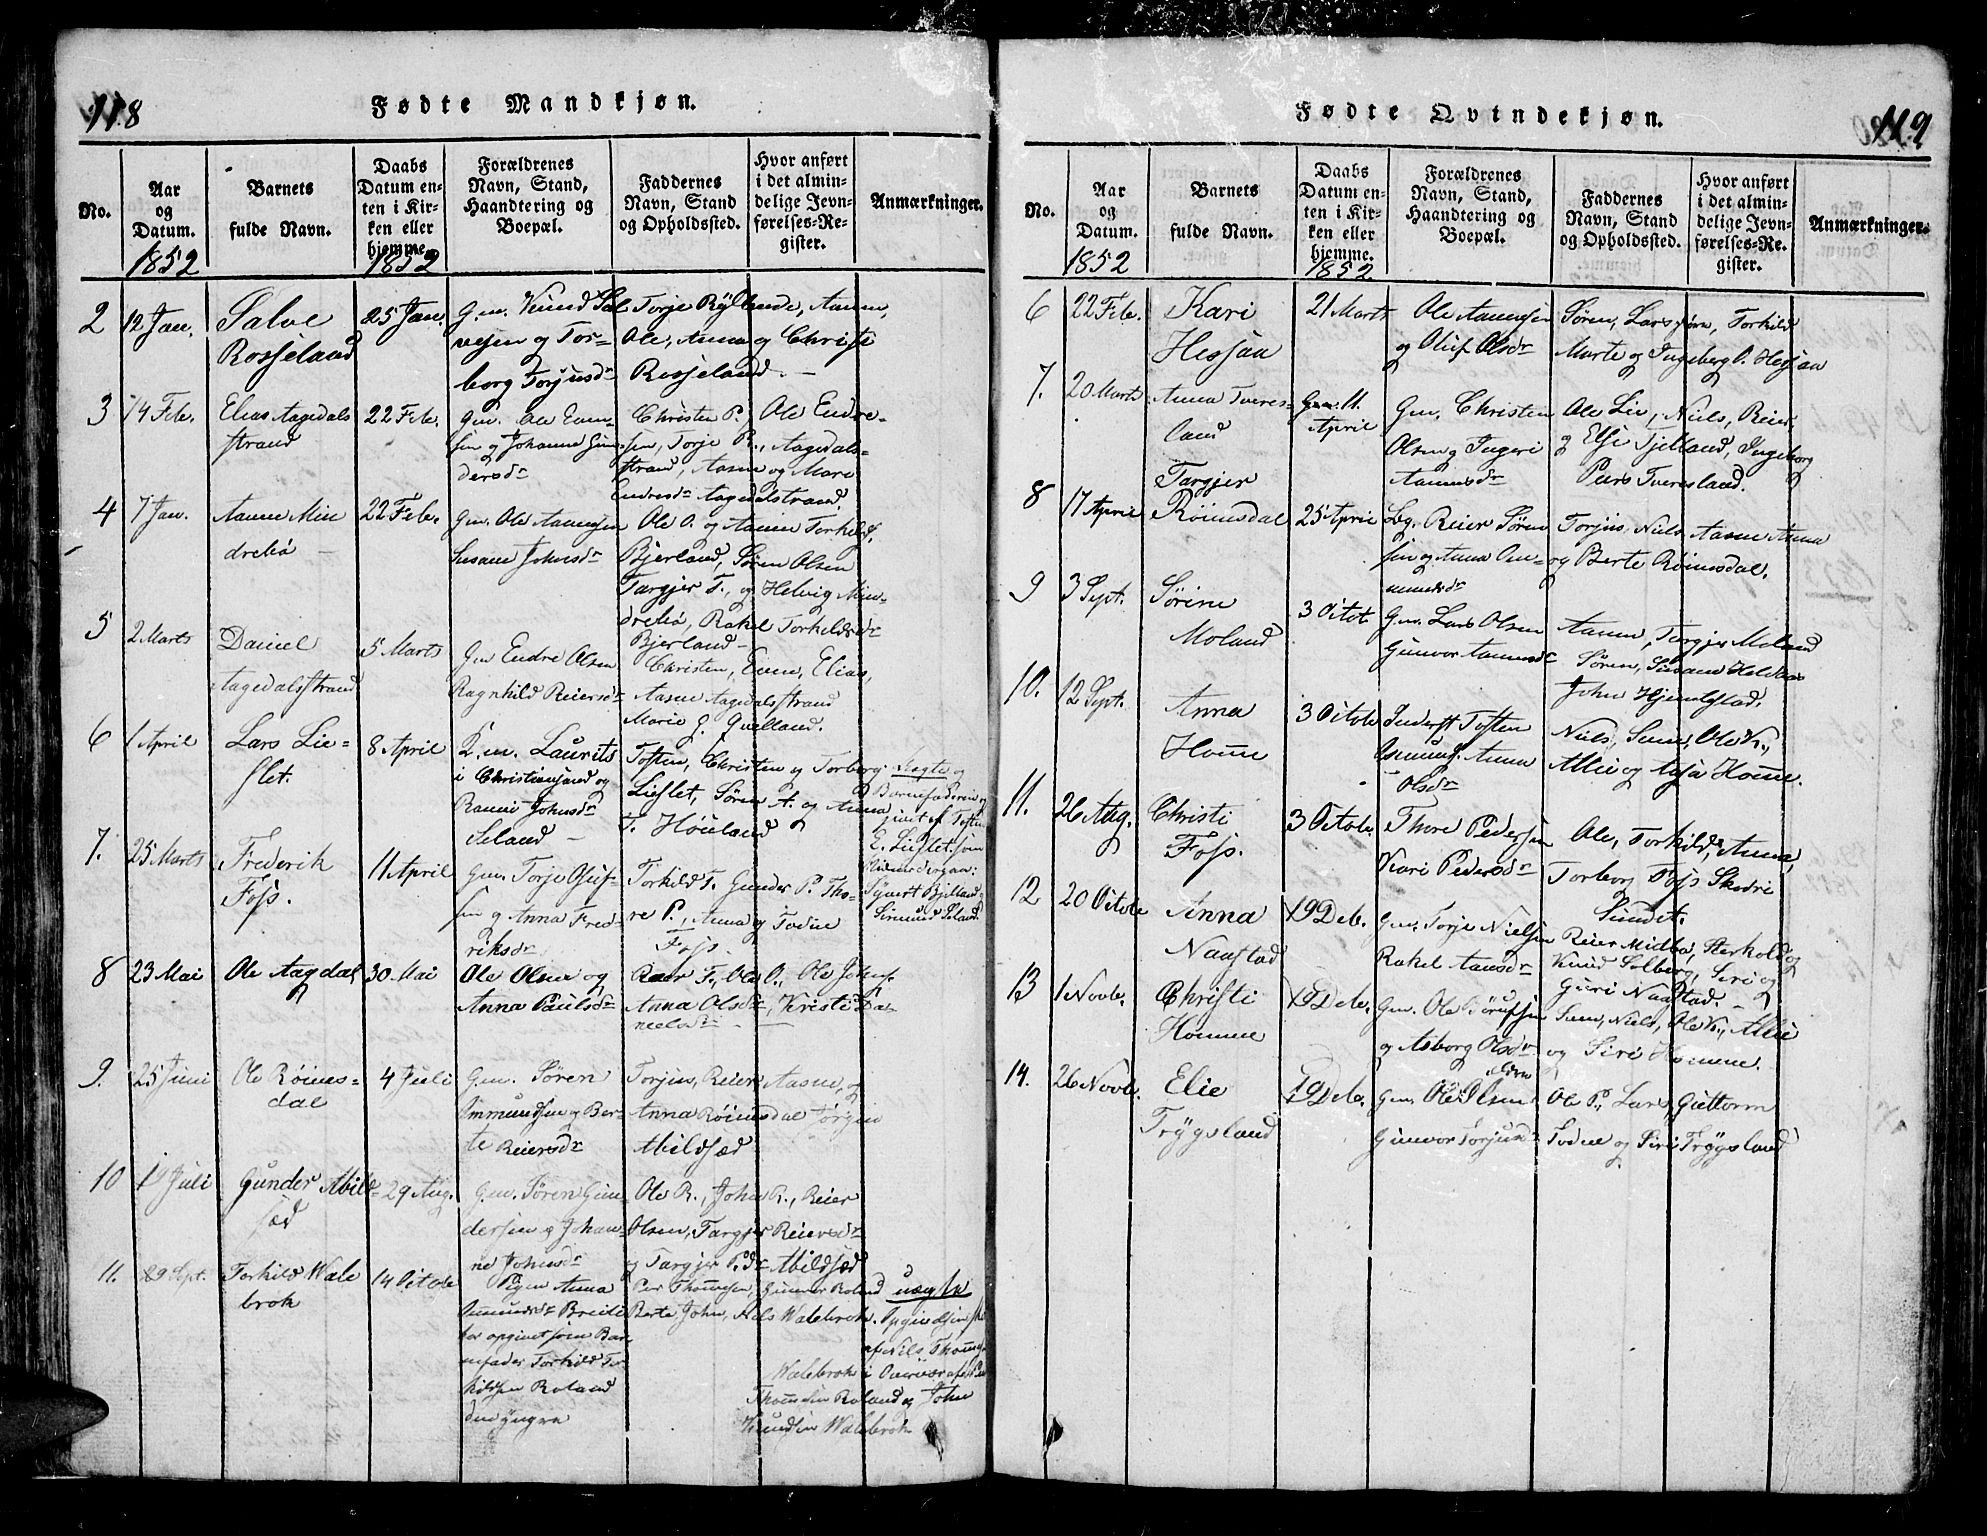 118
Fødte Mandkjøn.
No.
Aar
og
Datum.
Barnets
fulde Navn.
Daabs
Datum en-
ten i Kir-
ken eller
hjemme.
Forældrenes
Navn, Stand,
Haandtering og
Boepæl.
Faddernes
Navn, Stand
og Opholdssted.
Hvor anført
i det almin-
delige Jevn-
førelses-Re-
gister.
Anmærkninger.
1852
1852
2
12 Jan.
Salve
Rosseland
25 Jan.
Gm. Knud Sal
vesen og Tor-
borg Torjusdr
Torje Rysl
Ole, Anna og Christi
Rosseland.
3
14 Feb.
Elias Aagedals
strand
22 Feb.
Gm. Ole Even-
sen og Johanne Gun-
dersdr
Christen P.
Ole Endre-
sen, Torje R., Aagedals-
strand, Aasne og Mari
Endresdr Aagedalstrand.
4
7 Jan.
Aanen Min
drebø
22 Feb.
Gm. Ole Aanensen
Susane Johnsdr
Ole O. og Aanen Torkilds.
Bjerland, Søren Olsen
Targjer T., og Helvig Min-
drebø, Rakel Torkildsdr
Bjerland
5
2 Marts
Daniel
Aagedalsstrand
5 Marts
Gm Endre Olsen
Ragnhild Reiersdr
Christen, Even, Elias,
Aasne Aagedalsstrand
Marie G. Qvelland.
6
1 April
Lars Lie-
flet.
8 April
K. m. Laurits
i Christiansand og
Ranni Johnsdr
Seland
Tosten, Christen og Torborg
Lieflet, Søren A. og Anna
T. Høiland
Uægte og
Barnefaderen
E. Lieflet som
7.
25 Marts
Frederik
Foss.
11 April
Gm. Torje Oluf-
sen og Anna Fred-
riksdr
Torkild T. Gunder P. Tho-
re P., Anna og Todne
Foss.
8
23 Mai
Ole Aagdal
30 Mai
Ole Olsen og
Anna Paulsdr
Reier T., Ole O., Ole Johns.
Anna Olsdr, Kristi Da-
nielsdr
9.
25 Juni
Ole Røines-
dal
4 Juli
Gm. Søren
Ommundsen og Ber-
te Reiersdr
Torjus, Reier Aasne, og
Anna Røinesdal Jørgen
Abildsæd
10
19 Juli
Gunder Abild-
sæd
29 Aug.
Gm. Søren Gun-
dersen og Johan-
ne Johnsdr
Ole R., John R., Reier
Olsen, Targjer Reiersdr
og Targjer P.dr Abildsæd
11.
29 Sept.
Torkild Wale
brok
14 Octobe
Pigen Anna
Ommundsdr Breili
har opgivet som Bar-
nefader Torkild Tor
kildsen Roland
den yngre
Per Thomesen, Gunvor Roland
Berte, John, Nils Walebrok.
uægte
af Nils Thomes.
Walebrok i
Thomesen Roland og John
Knudsen Walebrok
119
Fødte Qvindekjøn.
No.
Aar
og
Datum.
Barnets
fulde Navn.
Daabs
Datum en-
ten i Kir-
ken eller
hjemme.
Forældrenes
Navn, Stand,
Haandtering og
Boepæl.
Faddernes
Navn, Stand
og Opholdssted.
Hvor anført
i det almin-
delige Jevn-
førelses-Re-
gister.
Anmærkninger.
1852
1852
6
22 Feb.
Kari
Hessaa
21 Marts
Ole Aanensen
og Oluf Olsdr
Søren, Lars, Torkild
Marte og Ingeborg O. Hessaa
7.
20 Marts
Anna Tveres-
land
11.
April
Gm. Christen
Olsen og Ingeri
Aanensdr
Ole Lie, Niels, Reier
og Elsi Tjelland, Ingeborg
Pers Tveresland.
8
17 April
Targjer
Røinesdal
25 April
Reier Søren
sen og Anna Om-
mundsdr
Torjus, Niels, Aasne Anna
og Berte Røinesdal.
9
3 Sept.
Sørine
Moland
3 Octob
Gm. Lars Olsen
Gunvor Aanensdr
Aanen, Targjer Moland
Søren, Susane
John Hjemlestad.
10.
12 Sept.
Anna
Homme
3 Octobe
Inderst Tosten
Asmund. Anna
Olsdr
Niels, Sem, Ole K.,
Allie og Aasa Homme.
11.
26 Aug.
Christi
Foss.
3 Octobe
Thore Pedersen
Kari Pedersdr
Ole, Torkild, Anna,
Torborg Foss Skedri
Sundet.
12
20 Octobe
Anna
Naustad
19 Deb.
Gm. Torje Nielsen
Rakel Aansdr
Reier Midbø, Sterkold og
Knud Solberg, Siri og
Guri Naustad.
13
1 Novb.
Christi
Homme
19 Deb.
Gm. Ole
og Asborg Olsdr
Sem, Niels, Ole K., Allie
og Siri Homme.
14.
26 Novb.
Elie
Trygsland
19 Deb.
Gm. Ole Olsen
Gunvor Torjusdr
Ole P., Lars, Guttorm
Todne og Siri Trygsland